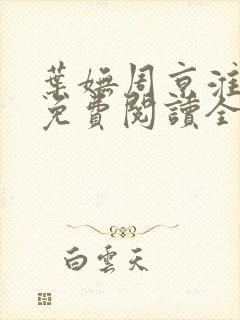 葉嫵周京淮
免費閱讀全
白雲天